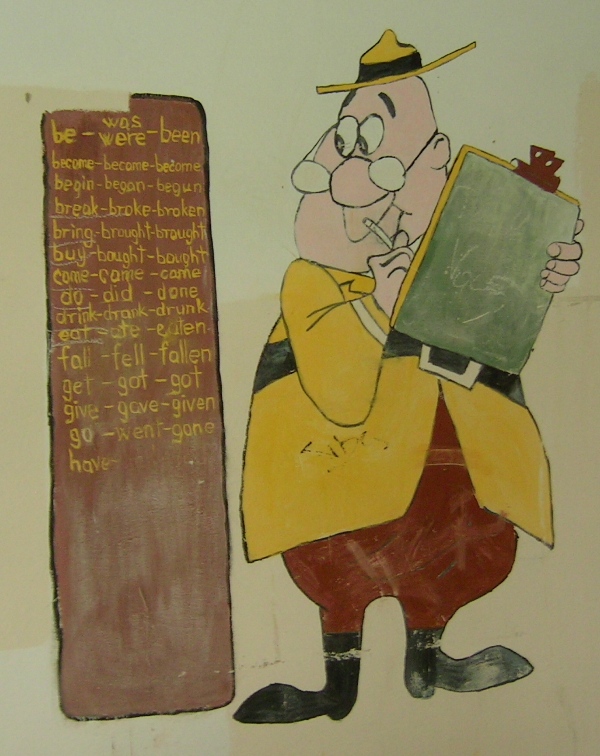 was
be - were - been
become-became-become
begin-began-begun
break-broke-broken
bring-brought-brought
buy-bought-bought
come-came-came
do - did - done
drink-drank-drunk
eat - ate - eaten
fall - fell - fallen
get - got - got
give - gave - given
go - went - gone
have -